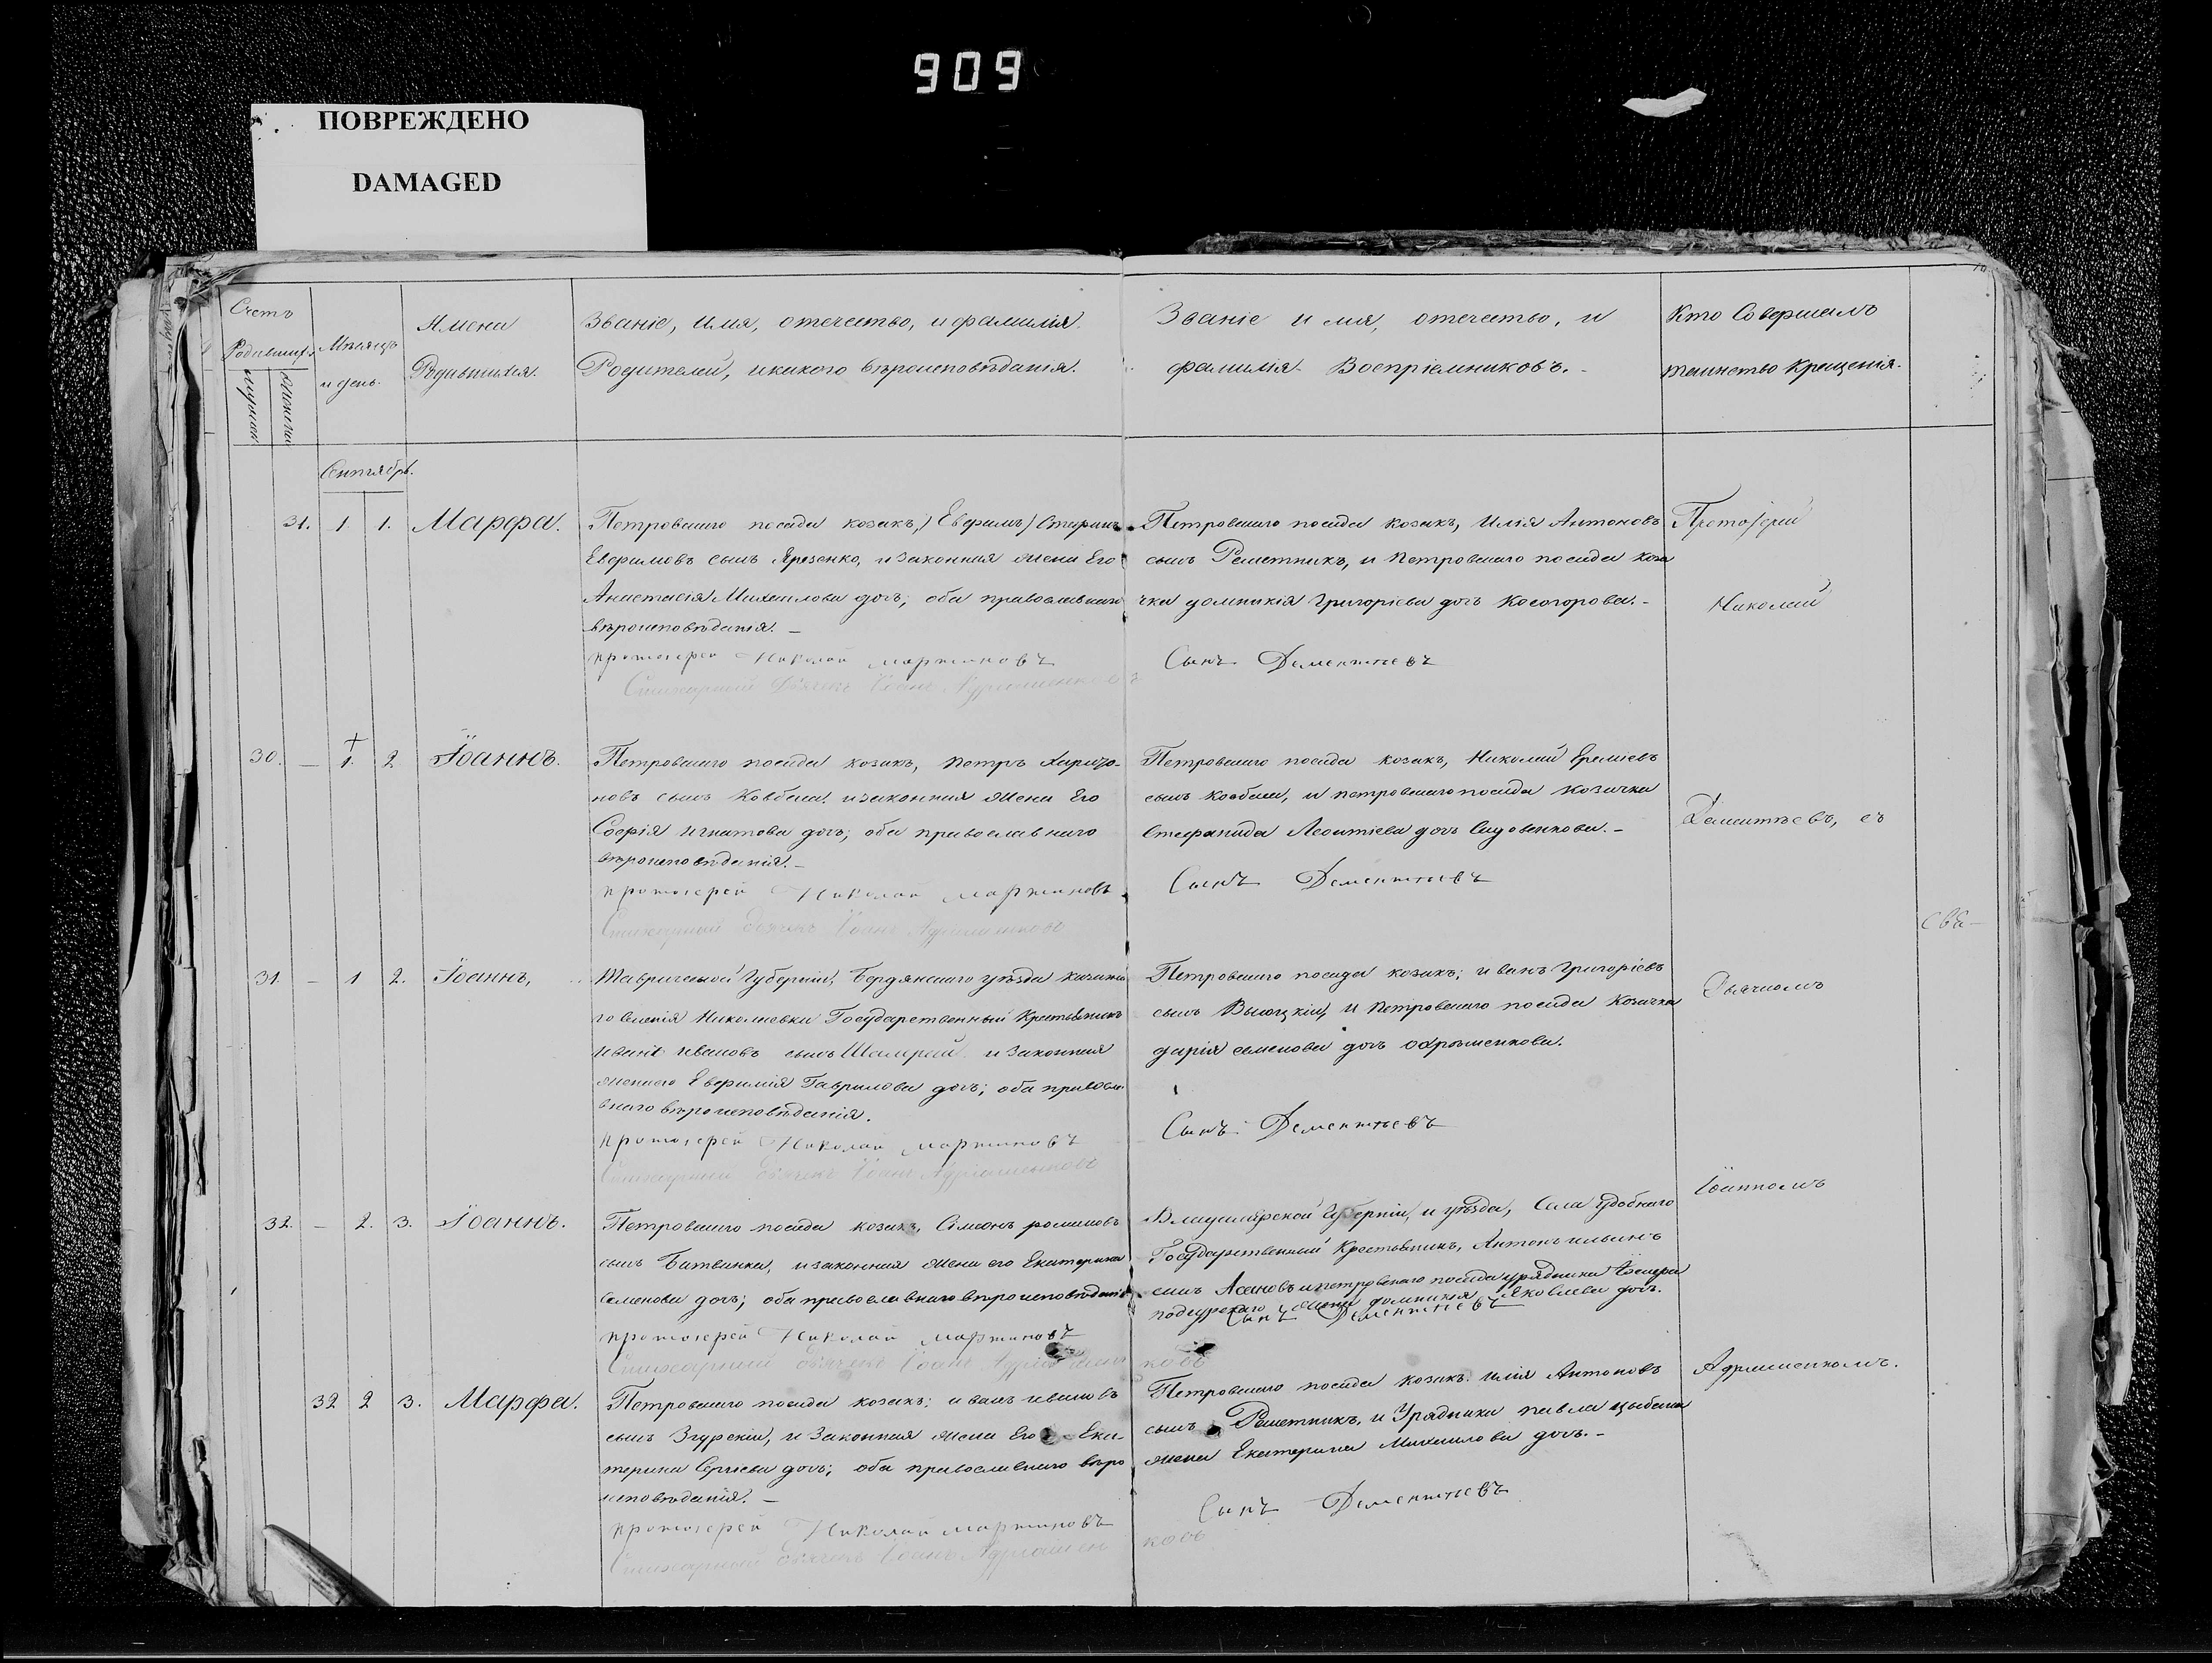 909
ПОВРЕЖДЕНО
DAMAGED
Счетъ Родившихся
мужеск. женски
Мѣсяцъ и день.
Имена Родившихся.
Званіе, Имя, отечество, и фамилія
Родителей, и какого вѣроисповѣданія.
Званіе имя, отечество, и
фамилія Воспріемниковъ.
Кто Совершалъ
таинство крещенія.
Сентябрь.
31. 1 1. Марфа.
Петровскаго посада козакъ,
Евфимовъ сынъ и законная жена Его
Анастасія Михаилова дочь; оба православнаго
вѣроисповѣданія. –
протоіерей Николай Мартиновъ
Стихарный Дьячекъ Іоанъ
Петровскаго посада козакъ, Илія Антоновъ
сынъ Решетникъ, и Петровскаго посада коза
чка домникія Григоріева дочь Косогорова. –
Сынъ Дементьевъ
Протоіерей
Николай
30. – 1. 2 Іоаннъ.
Петровскаго посада козакъ, Петръ Харито-
новъ сынъ Ковбаса, и законная жена Его
Софія Игнатова дочь; оба православнаго
вѣроисповѣданія. –
протоіерей Николай Мартиновъ
Стихарный Дьячекъ Іоанъ
Петровскаго посада козакъ, Николай Еремѣевъ
сынъ Ковбаса, и петровскаго посада козачка
Стефанида Леонтіева дочь –
Сынъ Дементьевъ
Дементьевъ, съ
Свя-
31. – 1 2. Іоаннъ,
Таврической Губерніи, Бердянскаго уѣзда казина
го селенія Николаевки Государственный Крестьянинъ
Иванъ Ивановъ сынъ и законная
жена его Евфимія Гаврилова дочь; оба правосла
внаго вѣроисповѣданія.
протоіерей Николай Мартиновъ
Стихарный Дьячекъ Іоанъ
Петровскаго посада козакъ, иванъ Григоріевъ
сынъ Высоцкій, и Петровскаго посада козачка
дарія семенова дочь охрѣменкова.
Сынъ Дементьевъ
Дьячкомъ
Іоанномъ
32. – 2. 3. Іоаннъ.
Петровскаго посада козакъ, Сімеонъ романовъ
сынъ Батвинка, и законная жена его Екатерина
Семенова дочь; оба православнаго вѣроисповѣданія
протоіерей Николай Мартиновъ
Стихарный Дьячекъ Іоанъ
ковъ
Губерніи, и уѣзда, Села Удобнаго
Государственный Крестьянинъ, Антонъ ильинъ
сынъ Асановъ и петровскаго посада урядника
подгурскаго жена домникія Яковлева дочь.
Сынъ Дементьевъ
32 2 3. Марфа.
Петровскаго посада козакъ; иванъ ивановъ
сынъ Згурскій, и Законная жена Его Ека-
терина Сергіева дочь; оба православнаго вѣро
исповѣданія. –
протоіерей Николай Мартиновъ
Стихарный Дьячекъ Іоанъ
ковъ
Петровскаго посада козакъ. Илія Антоновъ
сынъ Решетникъ, и Урядника павла цыбаша
жена Екатерина Михаилова дочь. –
Сынъ Дементьевъ